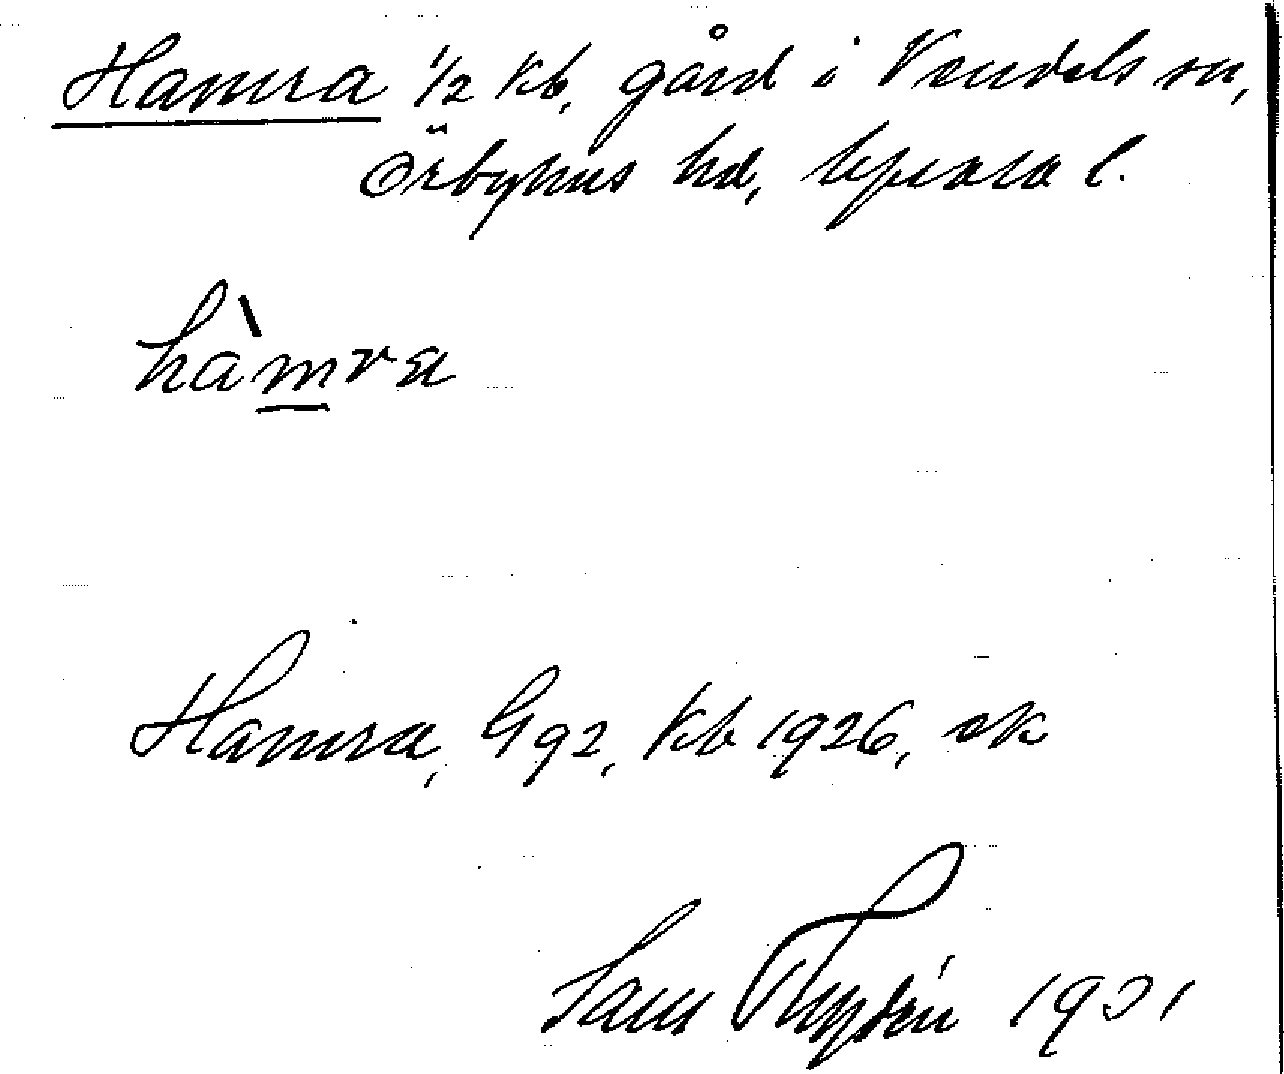 Hamra 1/2 Kb, gård i Vendels sn,
Örbyhus hd, Upsala l.
hàmra
Hamra, G92, Kb 1926, ek
Sam 1931